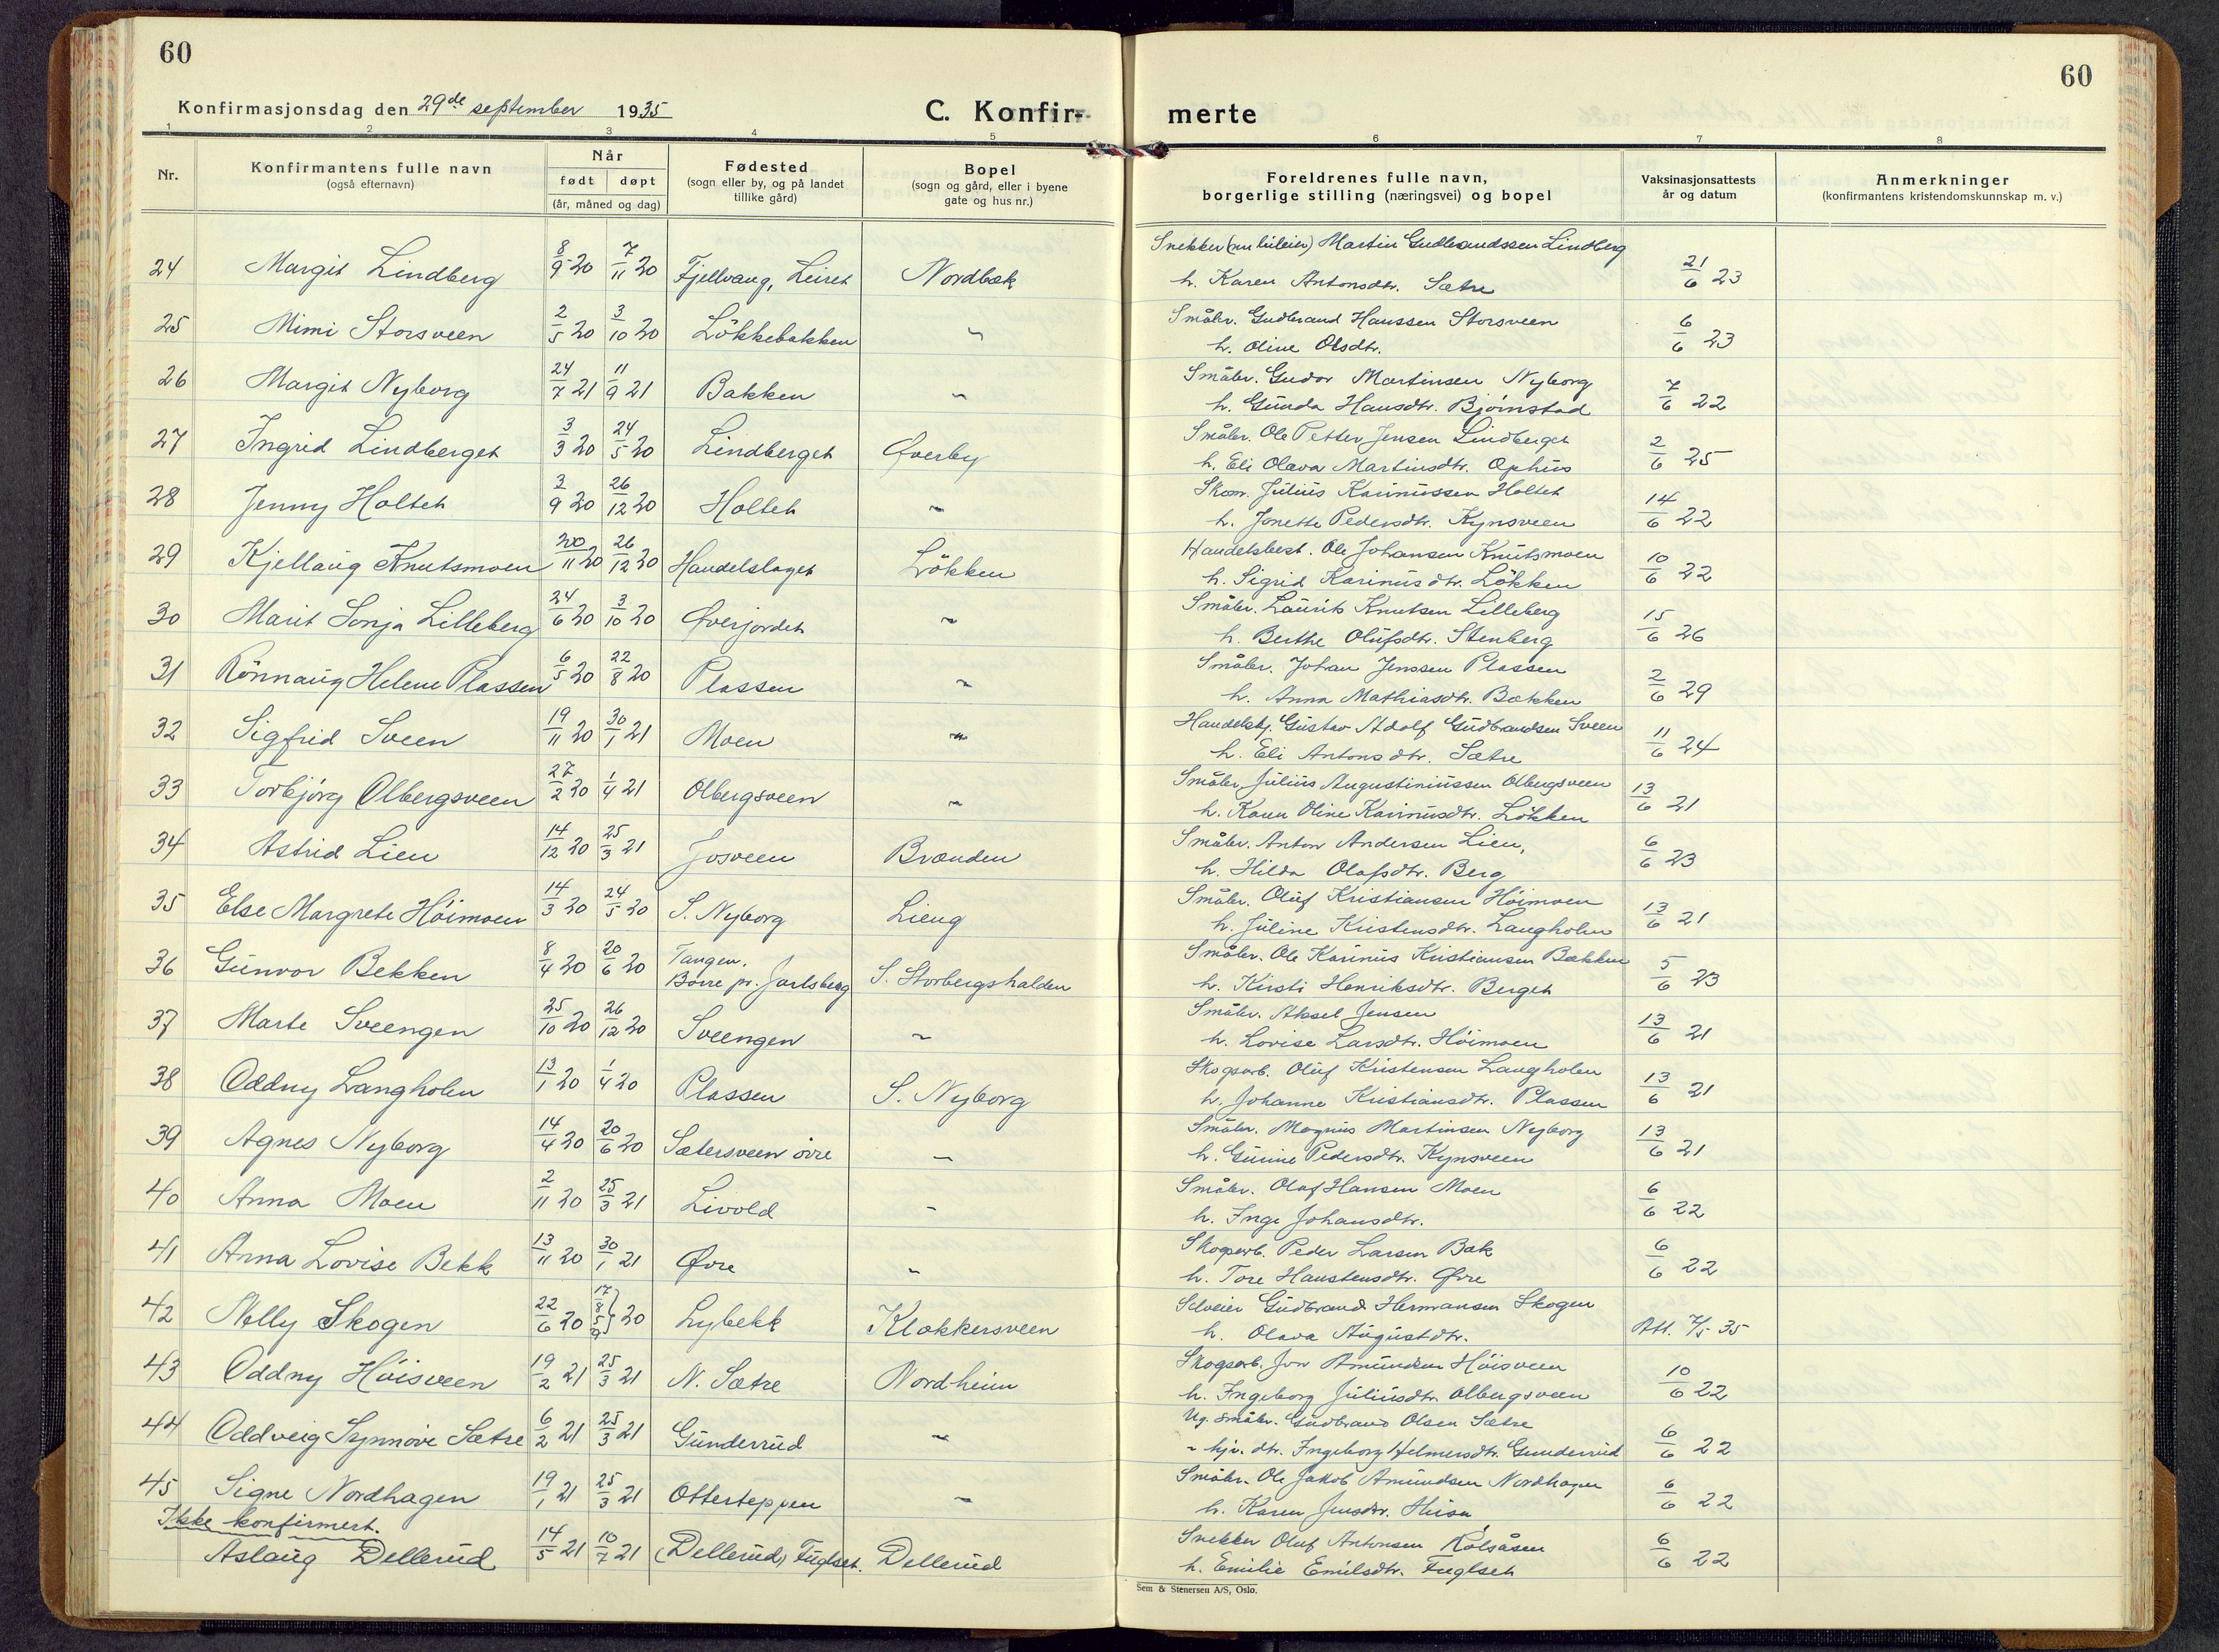 60
60
Konfirmasjonsdag den 29de september 1935
C. Konfir-
merte
1 2 3 4 5 6 7 8
Nr.
Konfirmantens fulle navn
(også efternavn)
Når
født døpt
(år, måned og dag)
Fødested
(sogn eller by, og på landet
tillike gård)
Bopel
(sogn og gård, eller i byene
gate og hus nr.)
Foreldrenes fulle navn,
borgerlige stilling (næringsvei) og bopel
Vaksinasjonsattests
år og datum
Anmerkninger
(konfirmantens kristendomskunnskap m. v.)
Snekker Martin Gudbrandssen Lindberg
24 Margit Lindberg 8/9 20 7/11 20 Fjellvang, Leiret Nordbæk h. Karen Antonsdtr. Sætre 21/6 23
Småbr. Gudbrand Hanssen Storsveen
25 Mimi Storsveen 2/5 20 3/10 20 Lökkebakken " h. Oline Olsdtr. 6/6 23
Småbr. Gudor Martinsen Nyborg
26 Margit Nyborg 24/7 21 11/9 21 Bakken " h. Gunda Hansdtr. Bjørnstad 7/6 22
Småbr. Ole Petter Jensen Lindberget
27 Ingrid Lindberget 3/3 20 24/5 20 Lindberget Øverby h. Eli Olava Martinsdtr. Ophus 2/6 25
Skom. Julius Karinussen Holtet
28 Jenny Holtet 3/9 20 26/12 20 Holtet " h. Jonette Pedersdtr. Kynsveen 14/6 22
Handelsbest. Ole Johansen Knutsmoen
29 Kjellaug Knutsmoen 20/11 20 26/12 20 Handelslaget Lökken h. Sigrid Karinusdtr. Lökken 10/6 22
Småbr. Laurits Knutsen Lilleberg
30 Marit Sonja Lilleberg 24/6 20 3/10 20 Øverjordet " h. Berthe Olufsdtr. Stenberg 15/6 26
Småbr. Johan Jenssen Plassen
31 Rönnaug Helene Plassen 6/5 20 22/8 20 Plassen " h. Anna Mathiasdtr. Bækken 2/6 29
Handelsbj. Gustav Adolf Gudbrandsen Sveen
32 Sigfrid Sveen 19/11 20 30/1 21 Moen " h. Eli Antonsdtr. Sætre 11/6 24
Småbr. Julius Augustinussen Olbergsveen
33 Torbjörg Olbergsveen 27/2 20 1/4 21 Olbergsveen " h. Karen Oline Karinusdtr. Lökken 13/6 21
Småbr. Anton Andersen Lien,
34 Astrid Lien 14/12 20 25/3 21 Josveen Brænden h. Hilda Olafsdtr. Berg 6/6 23
Småbr. Oluf Kristiansen Höimoen
35 Else Margrete Höimoen 14/3 20 24/5 20 S. Nyborg Lieng h. Juline Kristensdtr. Langholen 13/6 21
Småbr. Ole Karinus Kristiansen Bækken
36 Gunvor Bekken 8/4 20 20/6 20 Tangen, S. Storbergshalden h. Kirsti Henriksdtr. Berget 5/6 23
Borre pr. Jarlsberg
Småbr. Aksel Jensen
37 Marte Sveengen 25/10 20 26/12 20 Sveengen " h. Lovise Larsdtr. Höimoen 13/6 21
Skogsarb. Oluf Kristensen Langholen
38 Oddny Langholen 13/1 20 1/4 20 Plassen S. Nyborg h. Johanne Kristiansdtr. Plassen 13/6 21
Småbr. Magnus Martinsen Nyborg
39 Agnes Nyborg 14/4 20 20/6 20 Sætersveen övre " h. Gurine Pedersdtr. Kynsveen 13/6 21
Småbr. Olaf Hansen Moen
40 Anna Moen 2/11 20 25/3 21 Livold " h. Inge Johansdtr. 6/6 22
Skogsarb. Peder Larsen Bæk
41 Anna Lovise Bekk 13/11 20 30/1 21 Øvre " h. Tore Haustensdtr. Øvre 6/6 22
Selveier Gudbrand Hermansen Skogen
42 Nelly Skogen 22/6 20 17/8 5/9 } 20 Lybekk Klokkersveen h. Olava Augustdtr. Att. 7/5 35
Skogsarb. Jon Amundsen Höisveen
43 Oddny Höisveen 19/2 21 25/3 21 N. Sætre Nordheim h. Ingeborg Juliusdtr. Olbergsveen 10/6 22
Ug. småbr. Gudbrand Olsen Sætre
44 Oddveig Synnöve Sætre 6/2 21 25/3 21 Gunderrud " " hjv. dtr. Ingeborg Helmersdtr. Gunderrud 6/6 22
Småbr. Ole Jakob Amundsen Nordhagen
45 Signe Nordhagen 19/1 21 25/3 21 Otterteppen " h. Karen Jensdtr. 6/6 22
Ikke konfirmert.
Snekker Oluf Antonsen Kolsåsen
Aslaug Dellerud 14/5 21 10/7 21 (Dellerud) Fuglset. Dellerud h. Emilie Emilsdtr. Fuglset 6/6 22
Sem & Stenersen A/S, Oslo.